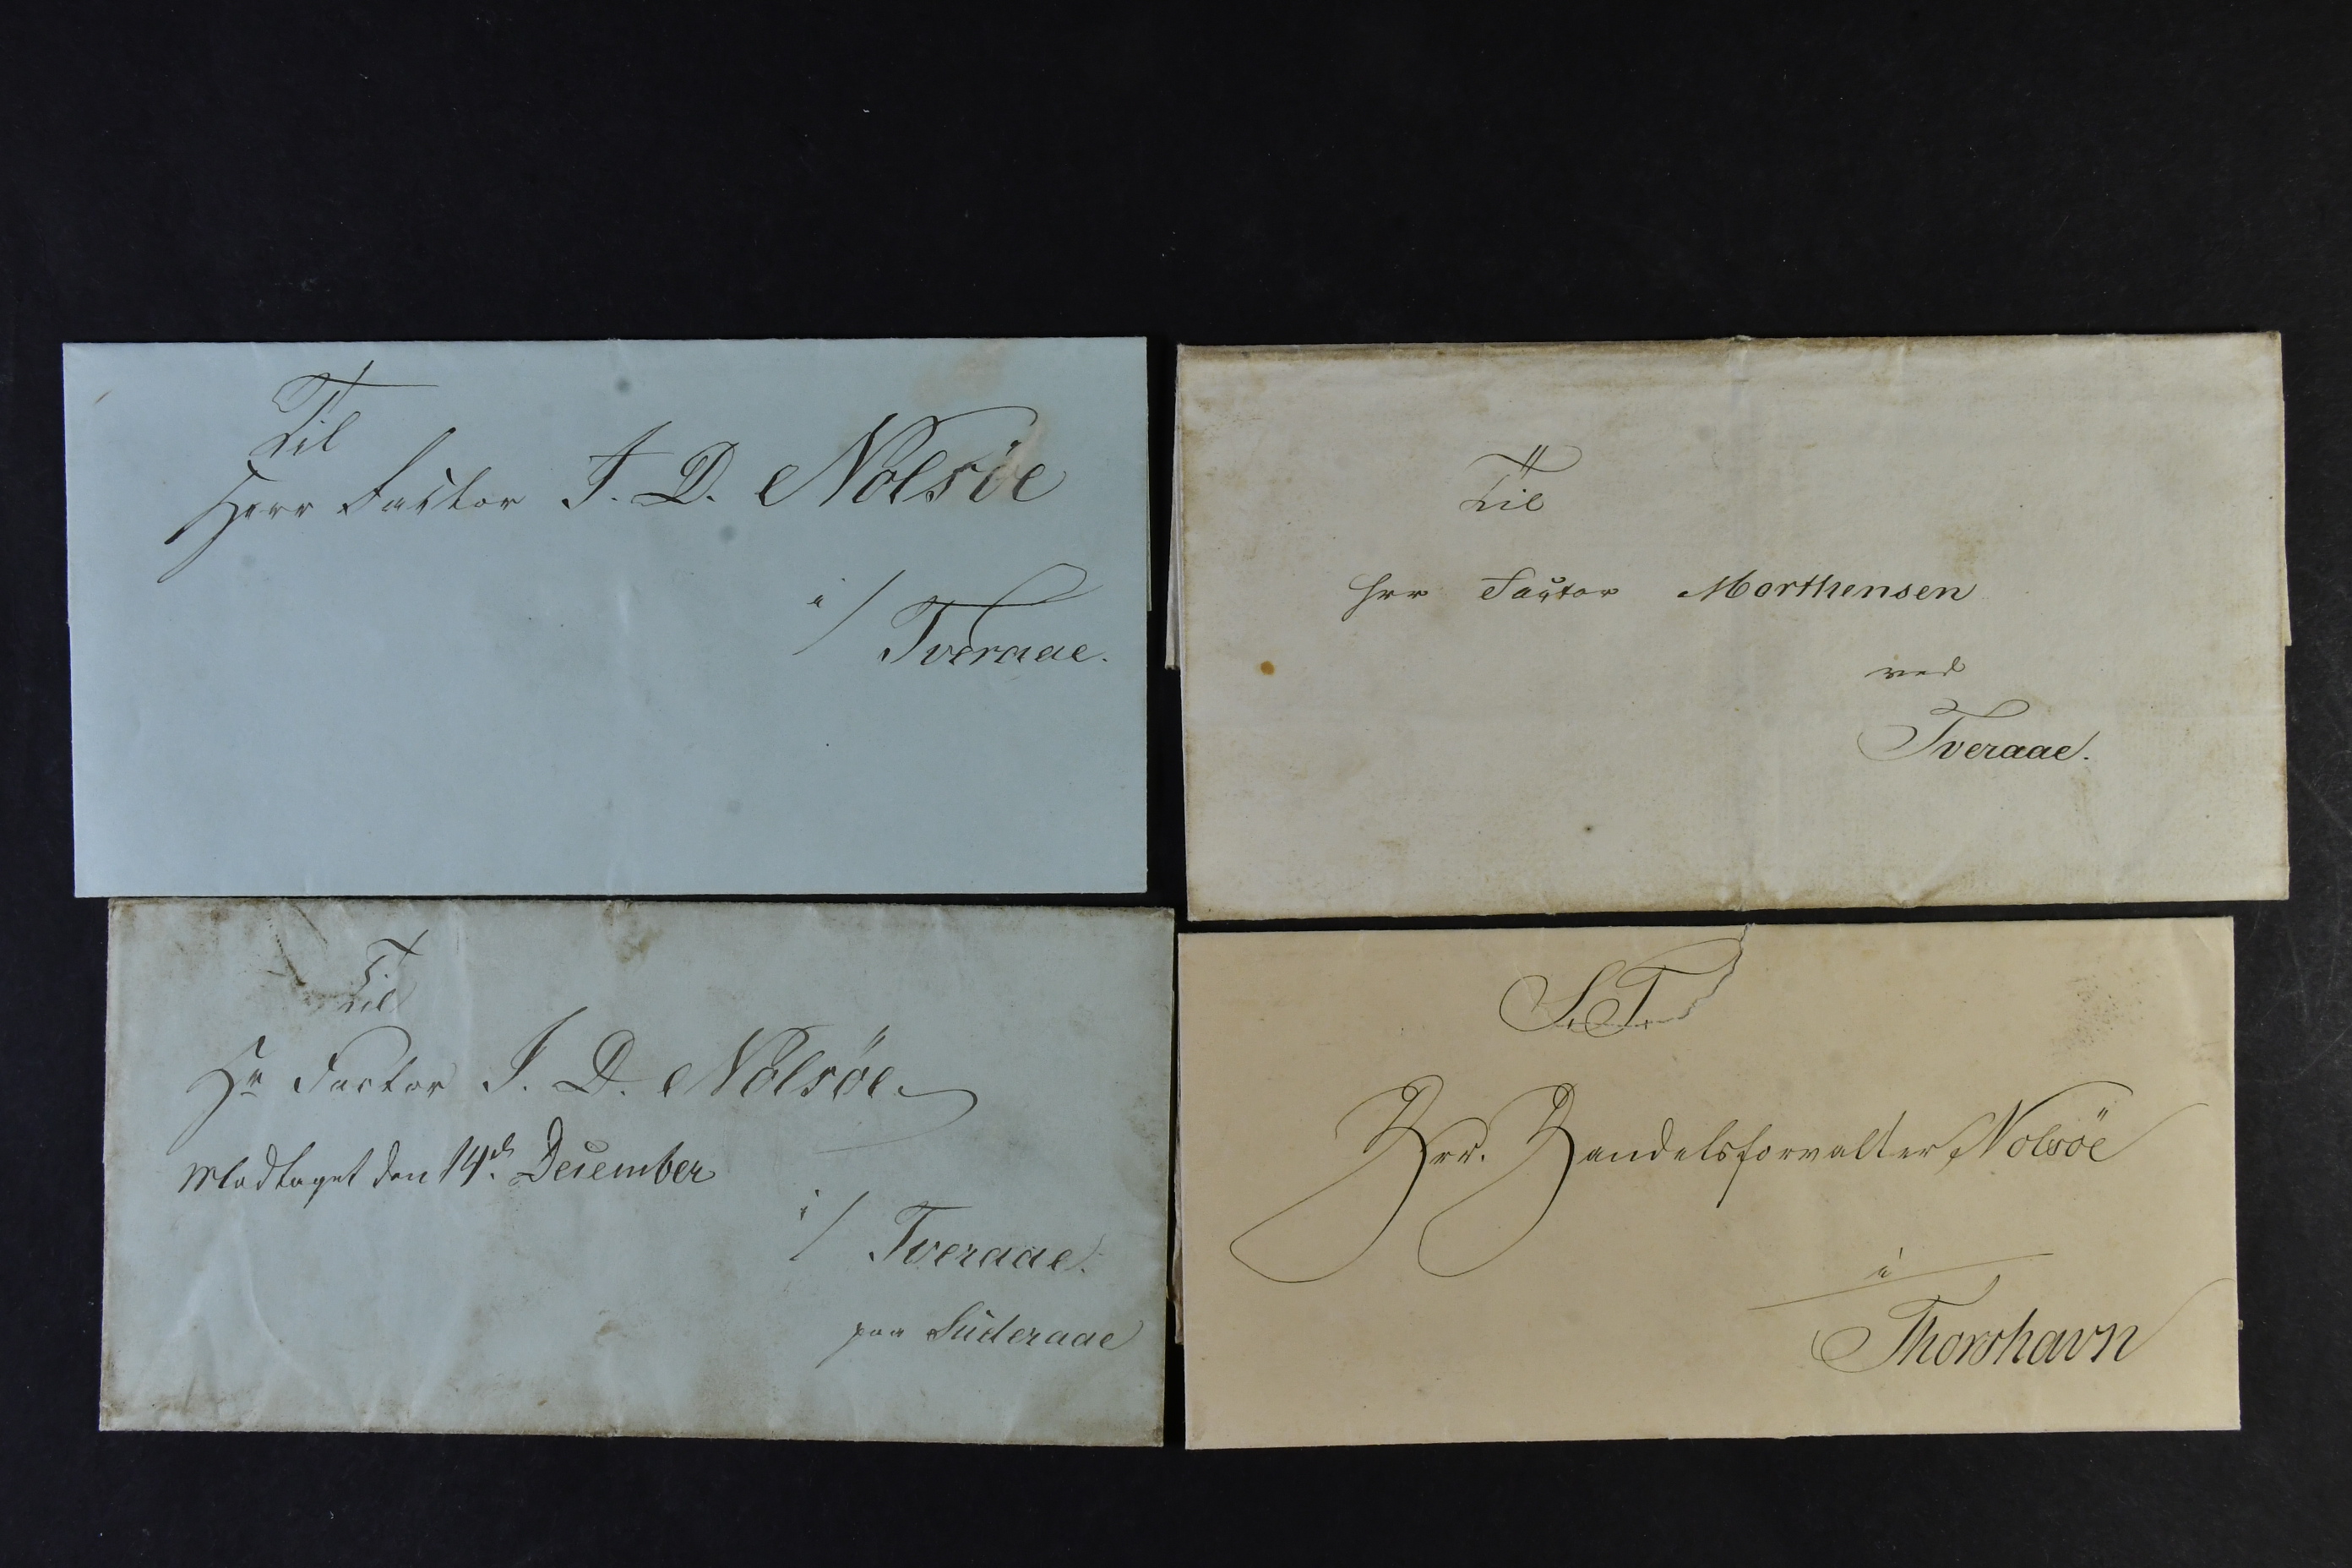 Til
Herr Factor J. D. Nolsöe
i/
Tveraae.
Til
Herr Factor Morthensen
ved
Tveraae.
Til
Hr Factor J. D. Nolsöe
Modtaget den 14de December
i/ Tveraae.
paa Suderaae
S. T.
Hrr. Handelsforvalter Nolsöe
i
Thorshavn